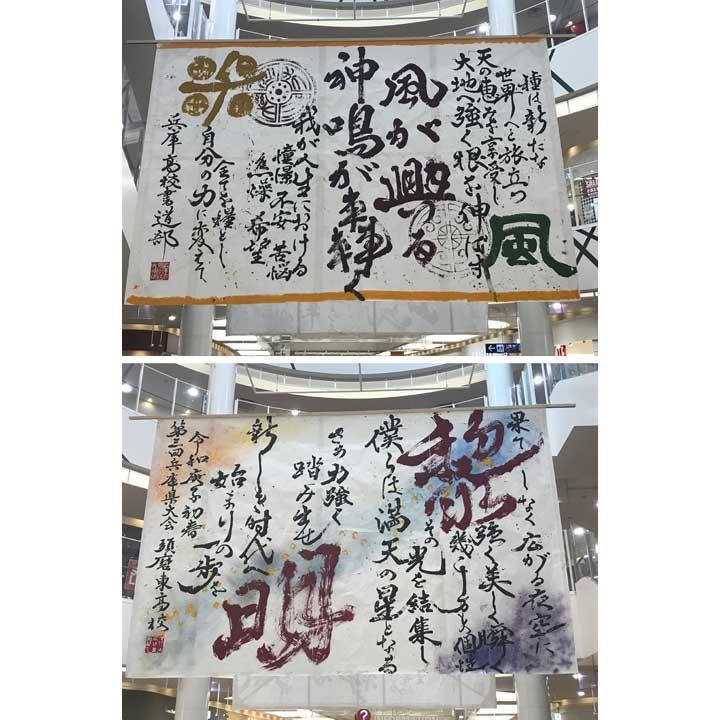 種は新たな
世界へと旅立つ
天の恵を享受し
大地へ強く根を伸ばす
風
風が興る
神鳴が轟く
我が人生における
憧憬 不安 苦悩
焦燥 希望
全てを糧とし
自分の力に変えて
兵庫高校書道部
黎明
果てしなく広がる夜空に
強く美しく瞬く
幾千もの個性
その光を結集し
僕らは満天の星となる
さあ力強く
踏み出せ
新しき時代へ
始まりの一歩を
令和庚子初春
第三四兵庫県大会 須磨東高校